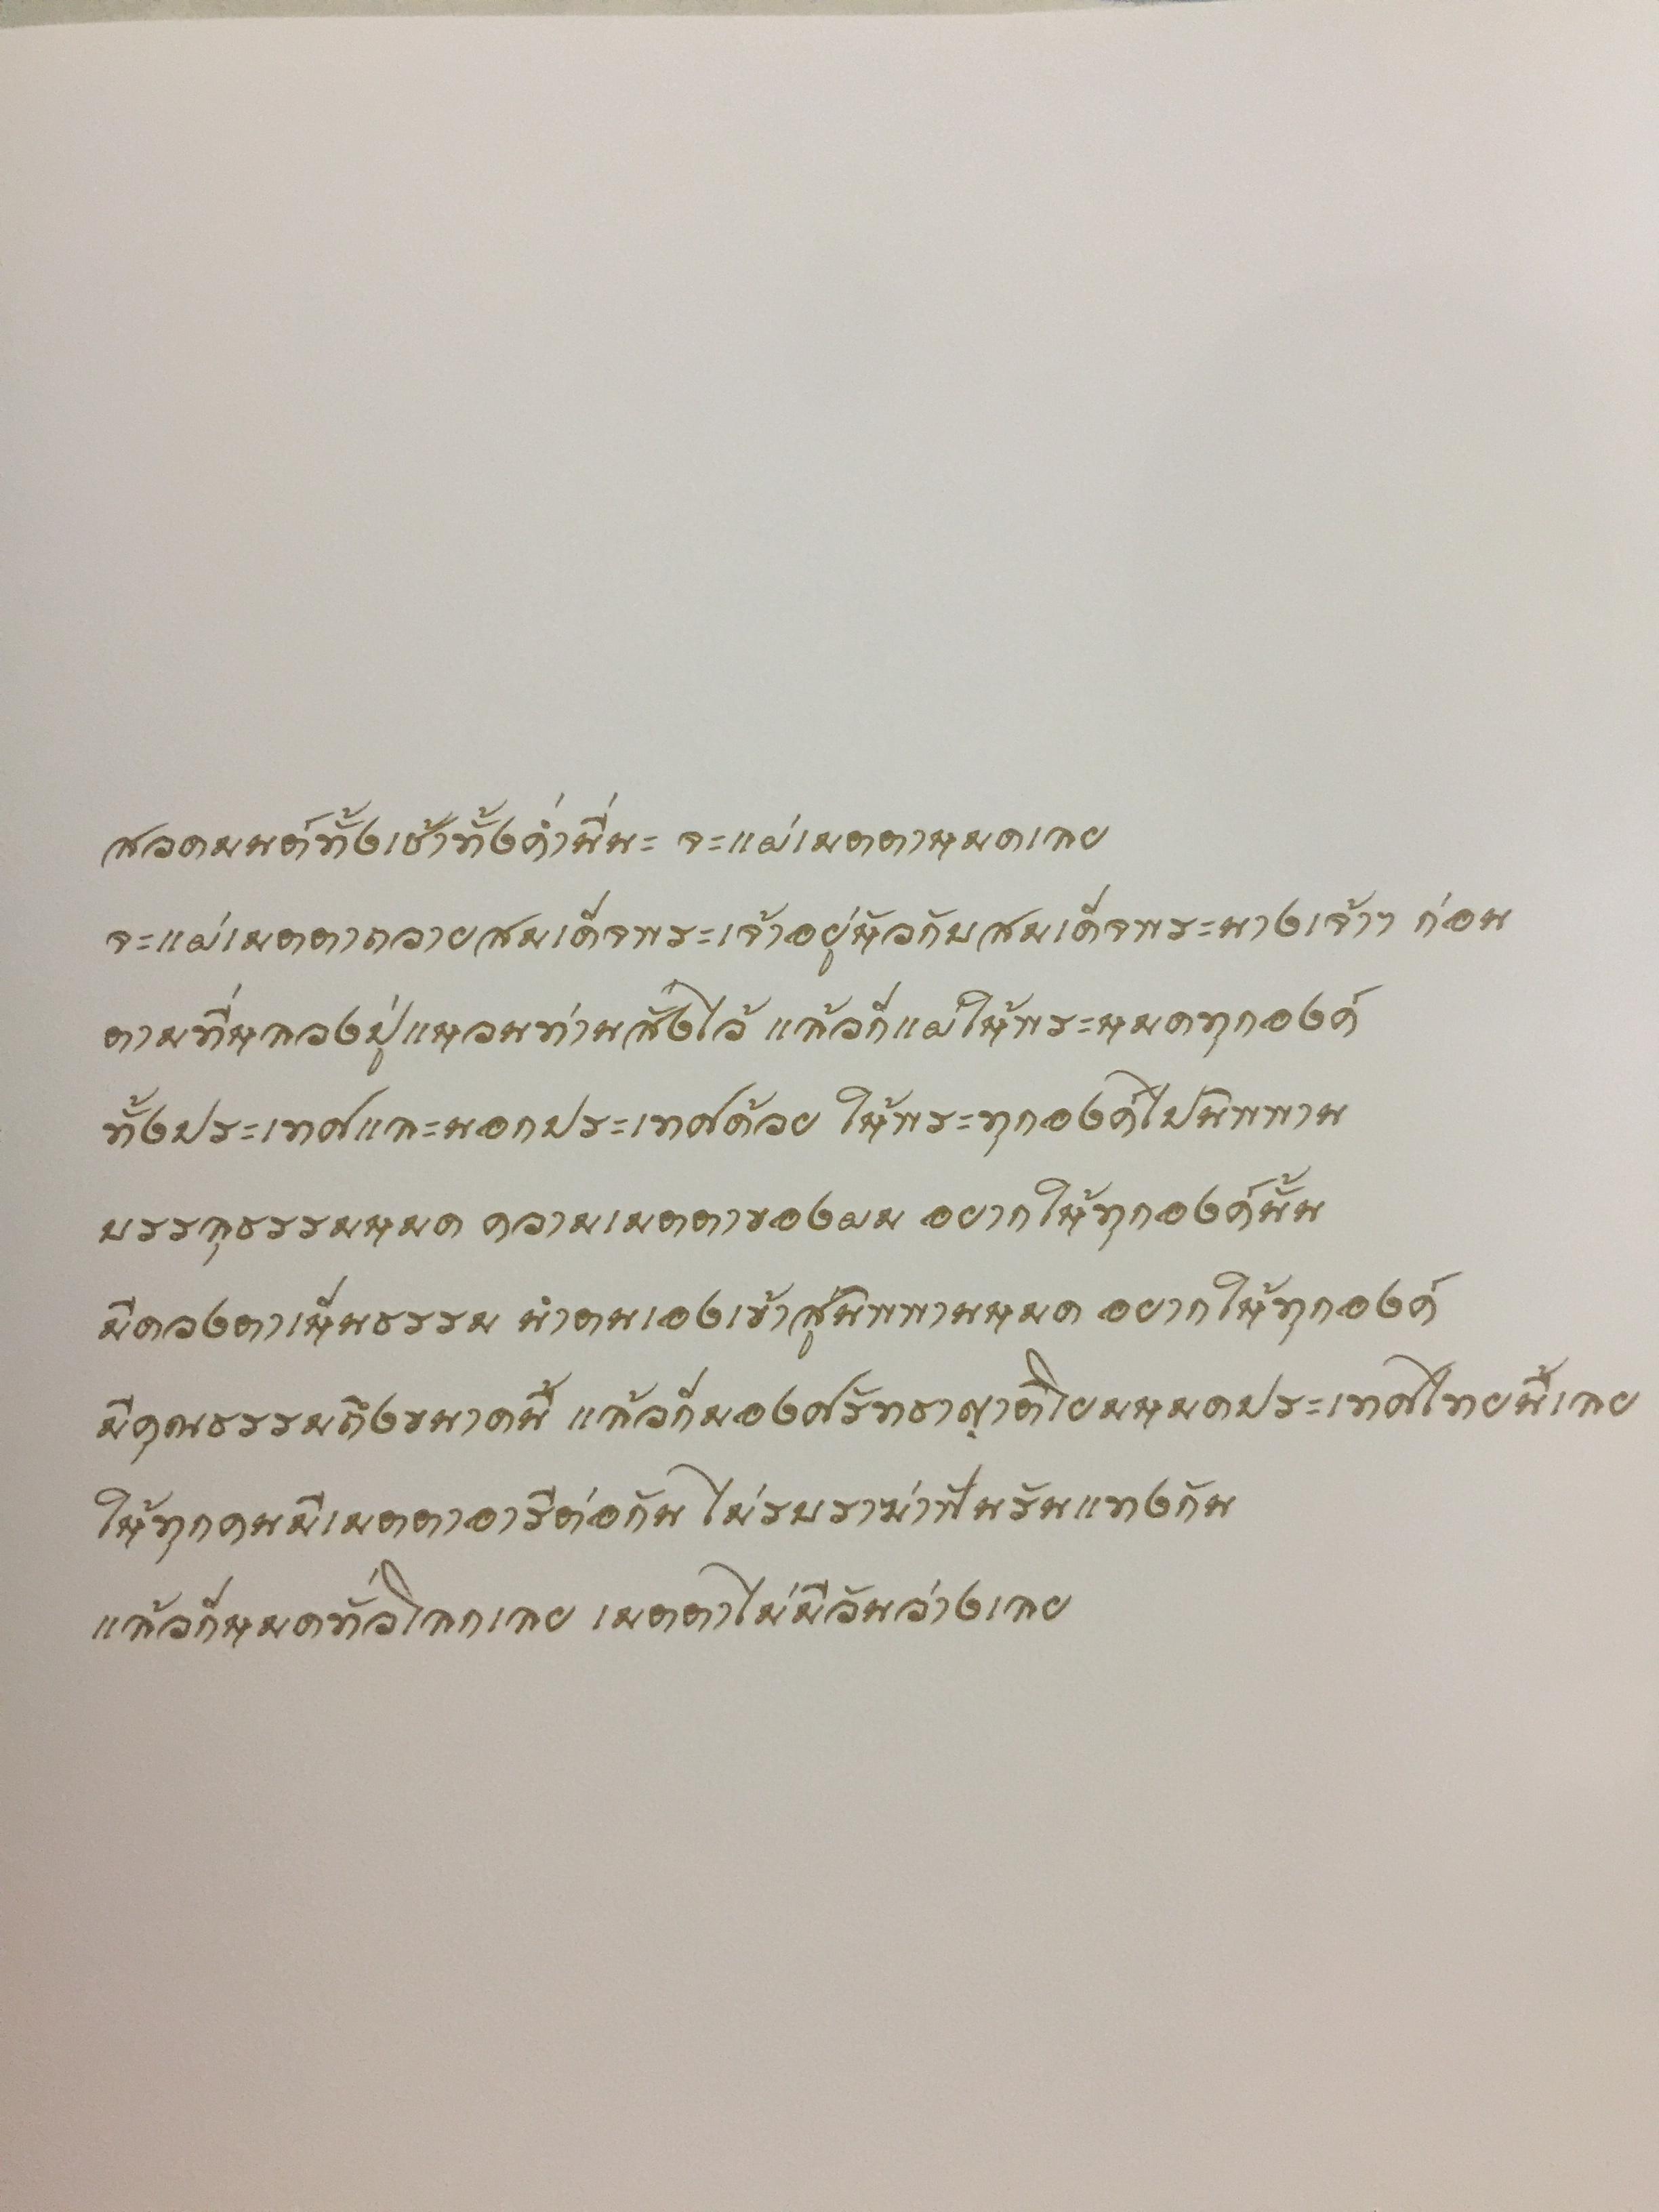 สวดมนต์ทั้งเช้าทั้งค่ำนี่นะ จะแผ่เมตตาหมดเลย
จะแผ่เมตตาถวายสมเด็จพระเจ้าอยู่หัวกับสมเด็จพระนางเจ้าฯ ก่อน
ตามที่หลวงปู่แหวนท่านสั่งไว้ แล้วก็แผ่ให้พระหมดทุกองค์
ทั้งประเทศและนอกประเทศด้วย ให้พระทุกองค์ไปนิพพาน
บรรลุธรรมหมด ความเมตตาของผม อยากให้ทุกองค์นั้น
มีดวงตาเห็นธรรม นำตนเองเข้าสู่นิพพานหมด อยากให้ทุกองค์
มีคุณธรรมถึงขนาดนี้ แล้วก็มองศรัทธาญาติโยมหมดประเทศไทยนี้เลย
ให้ทุกคนมีเมตตาอารีต่อกัน ไม่รบราฆ่าฟันรันแทงกัน
แล้วก็หมดทั่วโลกเลย เมตตาไม่มีวันว่างเลย